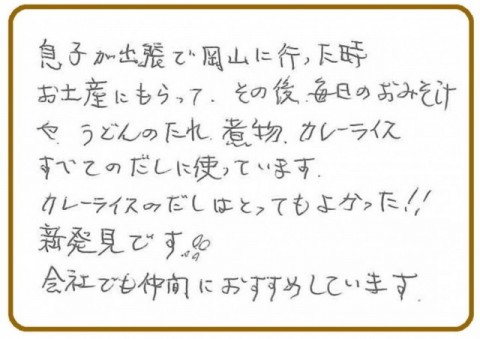 息子が出張で岡山に行った時
お土産にもらって、その後、毎日のおみそ汁
や、うどんのたれ、煮物、カレーライス
すべてのだしに使っています。
カレーライスのだしはとってもよかった!!
新発見です。
会社でも仲間におすすめしています。